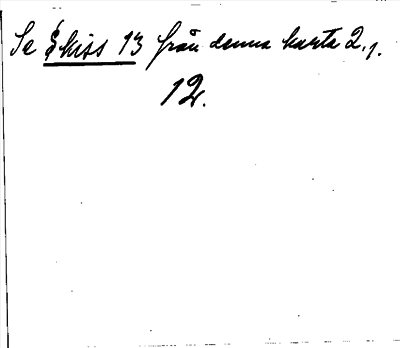 Se Skiss 13 från denna karta 2.1.
12.